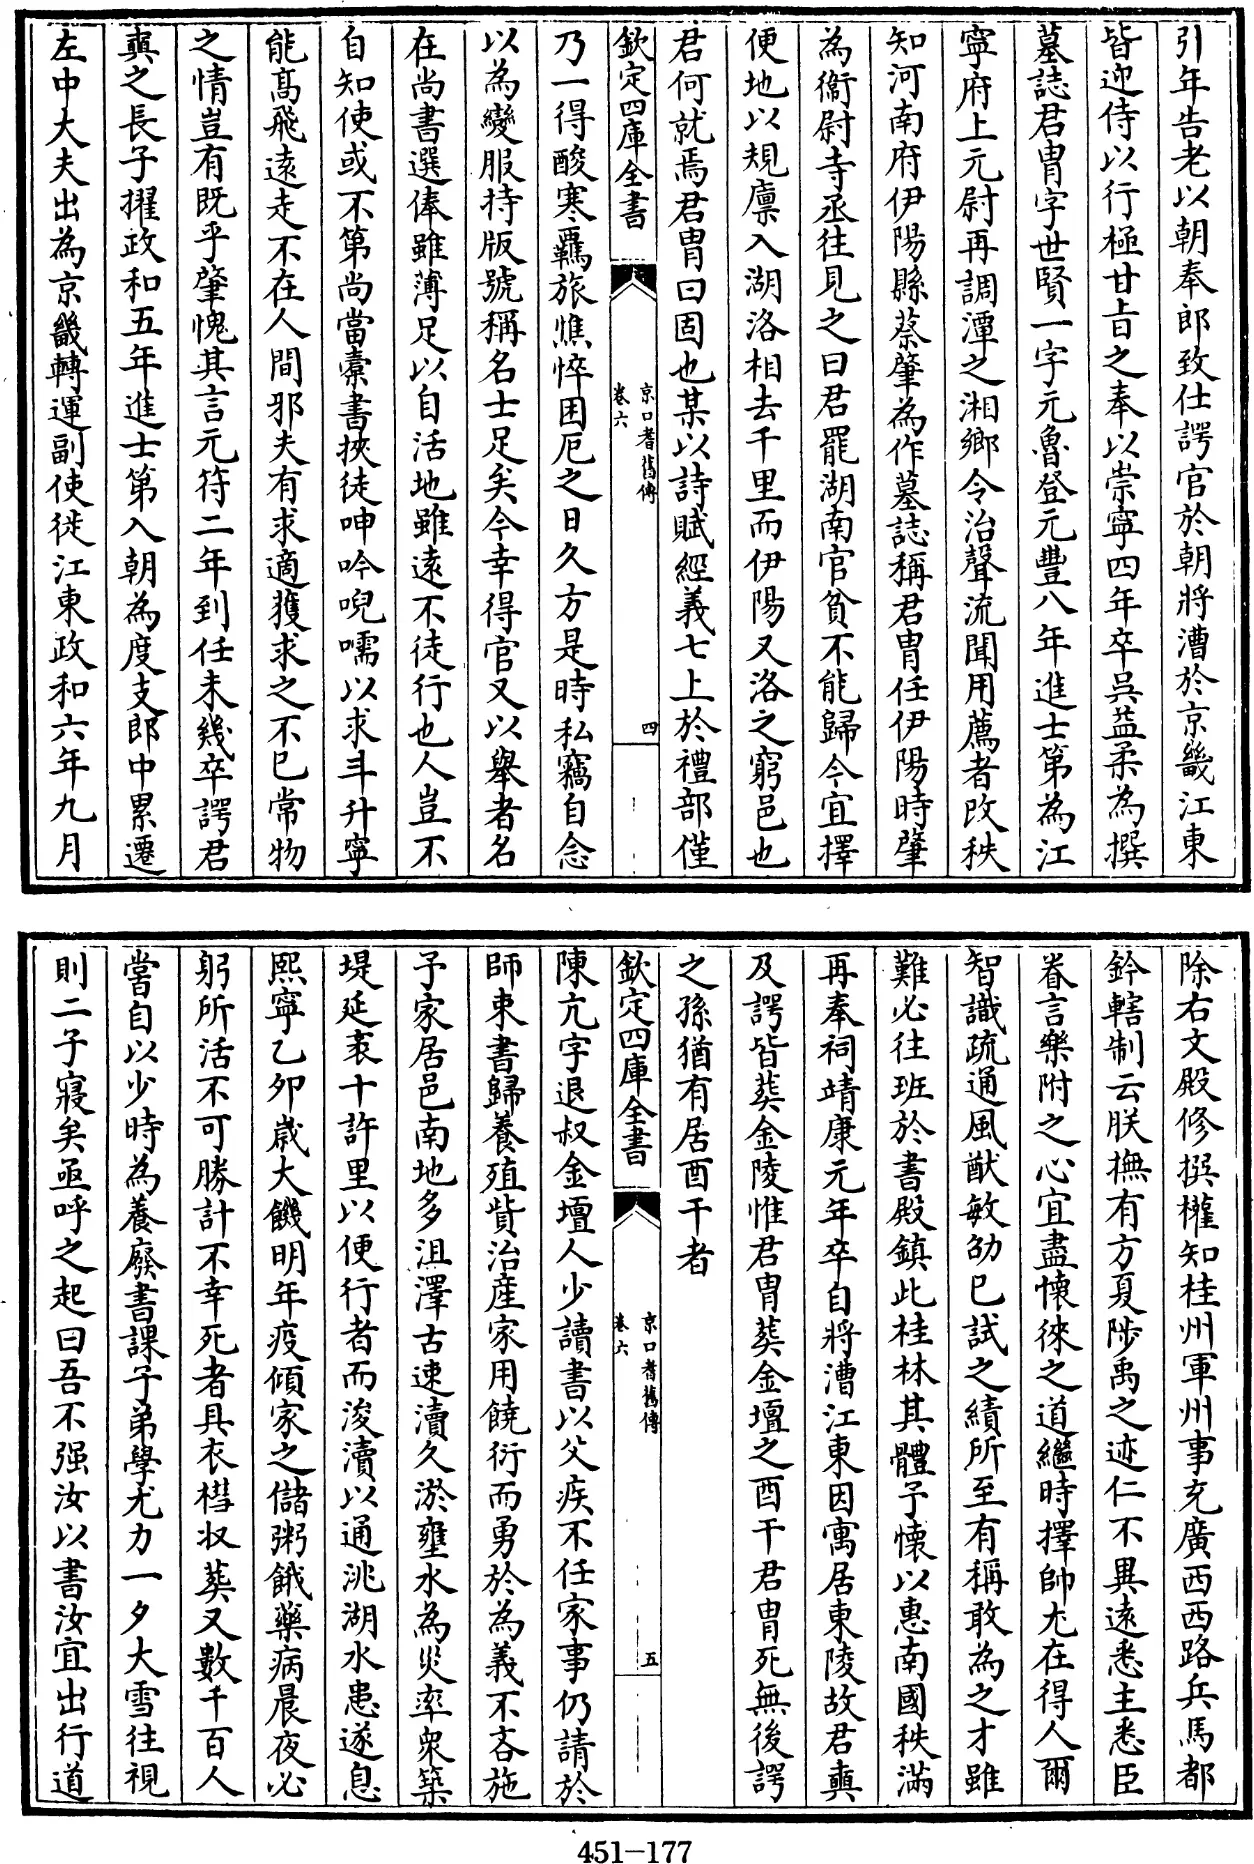 引年告老以朝奉郎致仕諤官於朝將漕於京畿江東
皆迎侍以行極甘旨之奉以崇寧四年卒吳益柔為撰
墓誌君胄字世賢一字元魯登元豐八年進士第為江
寧府上元尉再調潭之湘鄉令治聲流聞用薦者改秩
知河南府伊陽縣蔡肇為作墓誌稱君胄任伊陽時肇
為衞尉寺丞往見之曰君罷湖南官貧不能歸今宜擇
便地以規廪入湖洛相去千里而伊陽又洛之窮邑也
君何就焉君胄曰固也某以詩賦經義七上於禮部僅
欽定四庫全書
京口耆舊傳
卷六
四
乃一得酸寒羈旅憔悴困厄之日久方是時私竊自念
以為變服持版號稱名士足矣今幸得官又以舉者名
在尚書選俸雖薄足以自活地雖遠不徒行也人豈不
自知使或不第尚當橐書挾徒呻吟唲嚅以求斗升寧
能髙飛遠走不在人間邪夫有求適獲求之不已常物
之情豈有既乎肇愧其言元符二年到任未幾卒諤君
奭之長子擢政和五年進士第入朝為度支郎中累遷
左中大夫出為京畿轉運副使徙江東政和六年九月
除右文殿修撰權知桂州軍州事充廣西西路兵馬都
鈐轄制云朕撫有方夏陟禹之迹仁不異遠悉主悉臣
眷言樂附之心宜盡懷徠之道繼時擇帥尤在得人爾
智識疏通風猷敏劭已試之績所至有稱敢為之才雖
難必往班於書殿鎮此桂林其體予懷以惠南國秩滿
再奉祠靖康元年卒自將漕江東因寓居東陵故君奭
及諤皆葬金陵惟君胄葬金壇之酉干君胄死無後諤
之孫猶有居酉干者
欽定四庫全書
京口耆舊傳
卷六
五
陳亢字退叔金壇人少讀書以父疾不任家事仍請於
師束書歸養殖貲治產家用饒衍而勇於為義不吝施
予家居邑南地多沮澤古速瀆久淤壅水為災率衆築
堤延袤十許里以便行者而浚瀆以通洮湖水患遂息
熙寧乙卯歲大饑明年疫傾家之儲粥餓藥病晨夜必
躬所活不可勝計不幸死者具衣槥收葬又數千百人
嘗自以少時為養廢書課子弟學尤力一夕大雪往視
則二子寢矣亟呼之起曰吾不强汝以書汝宜出行道
451-177